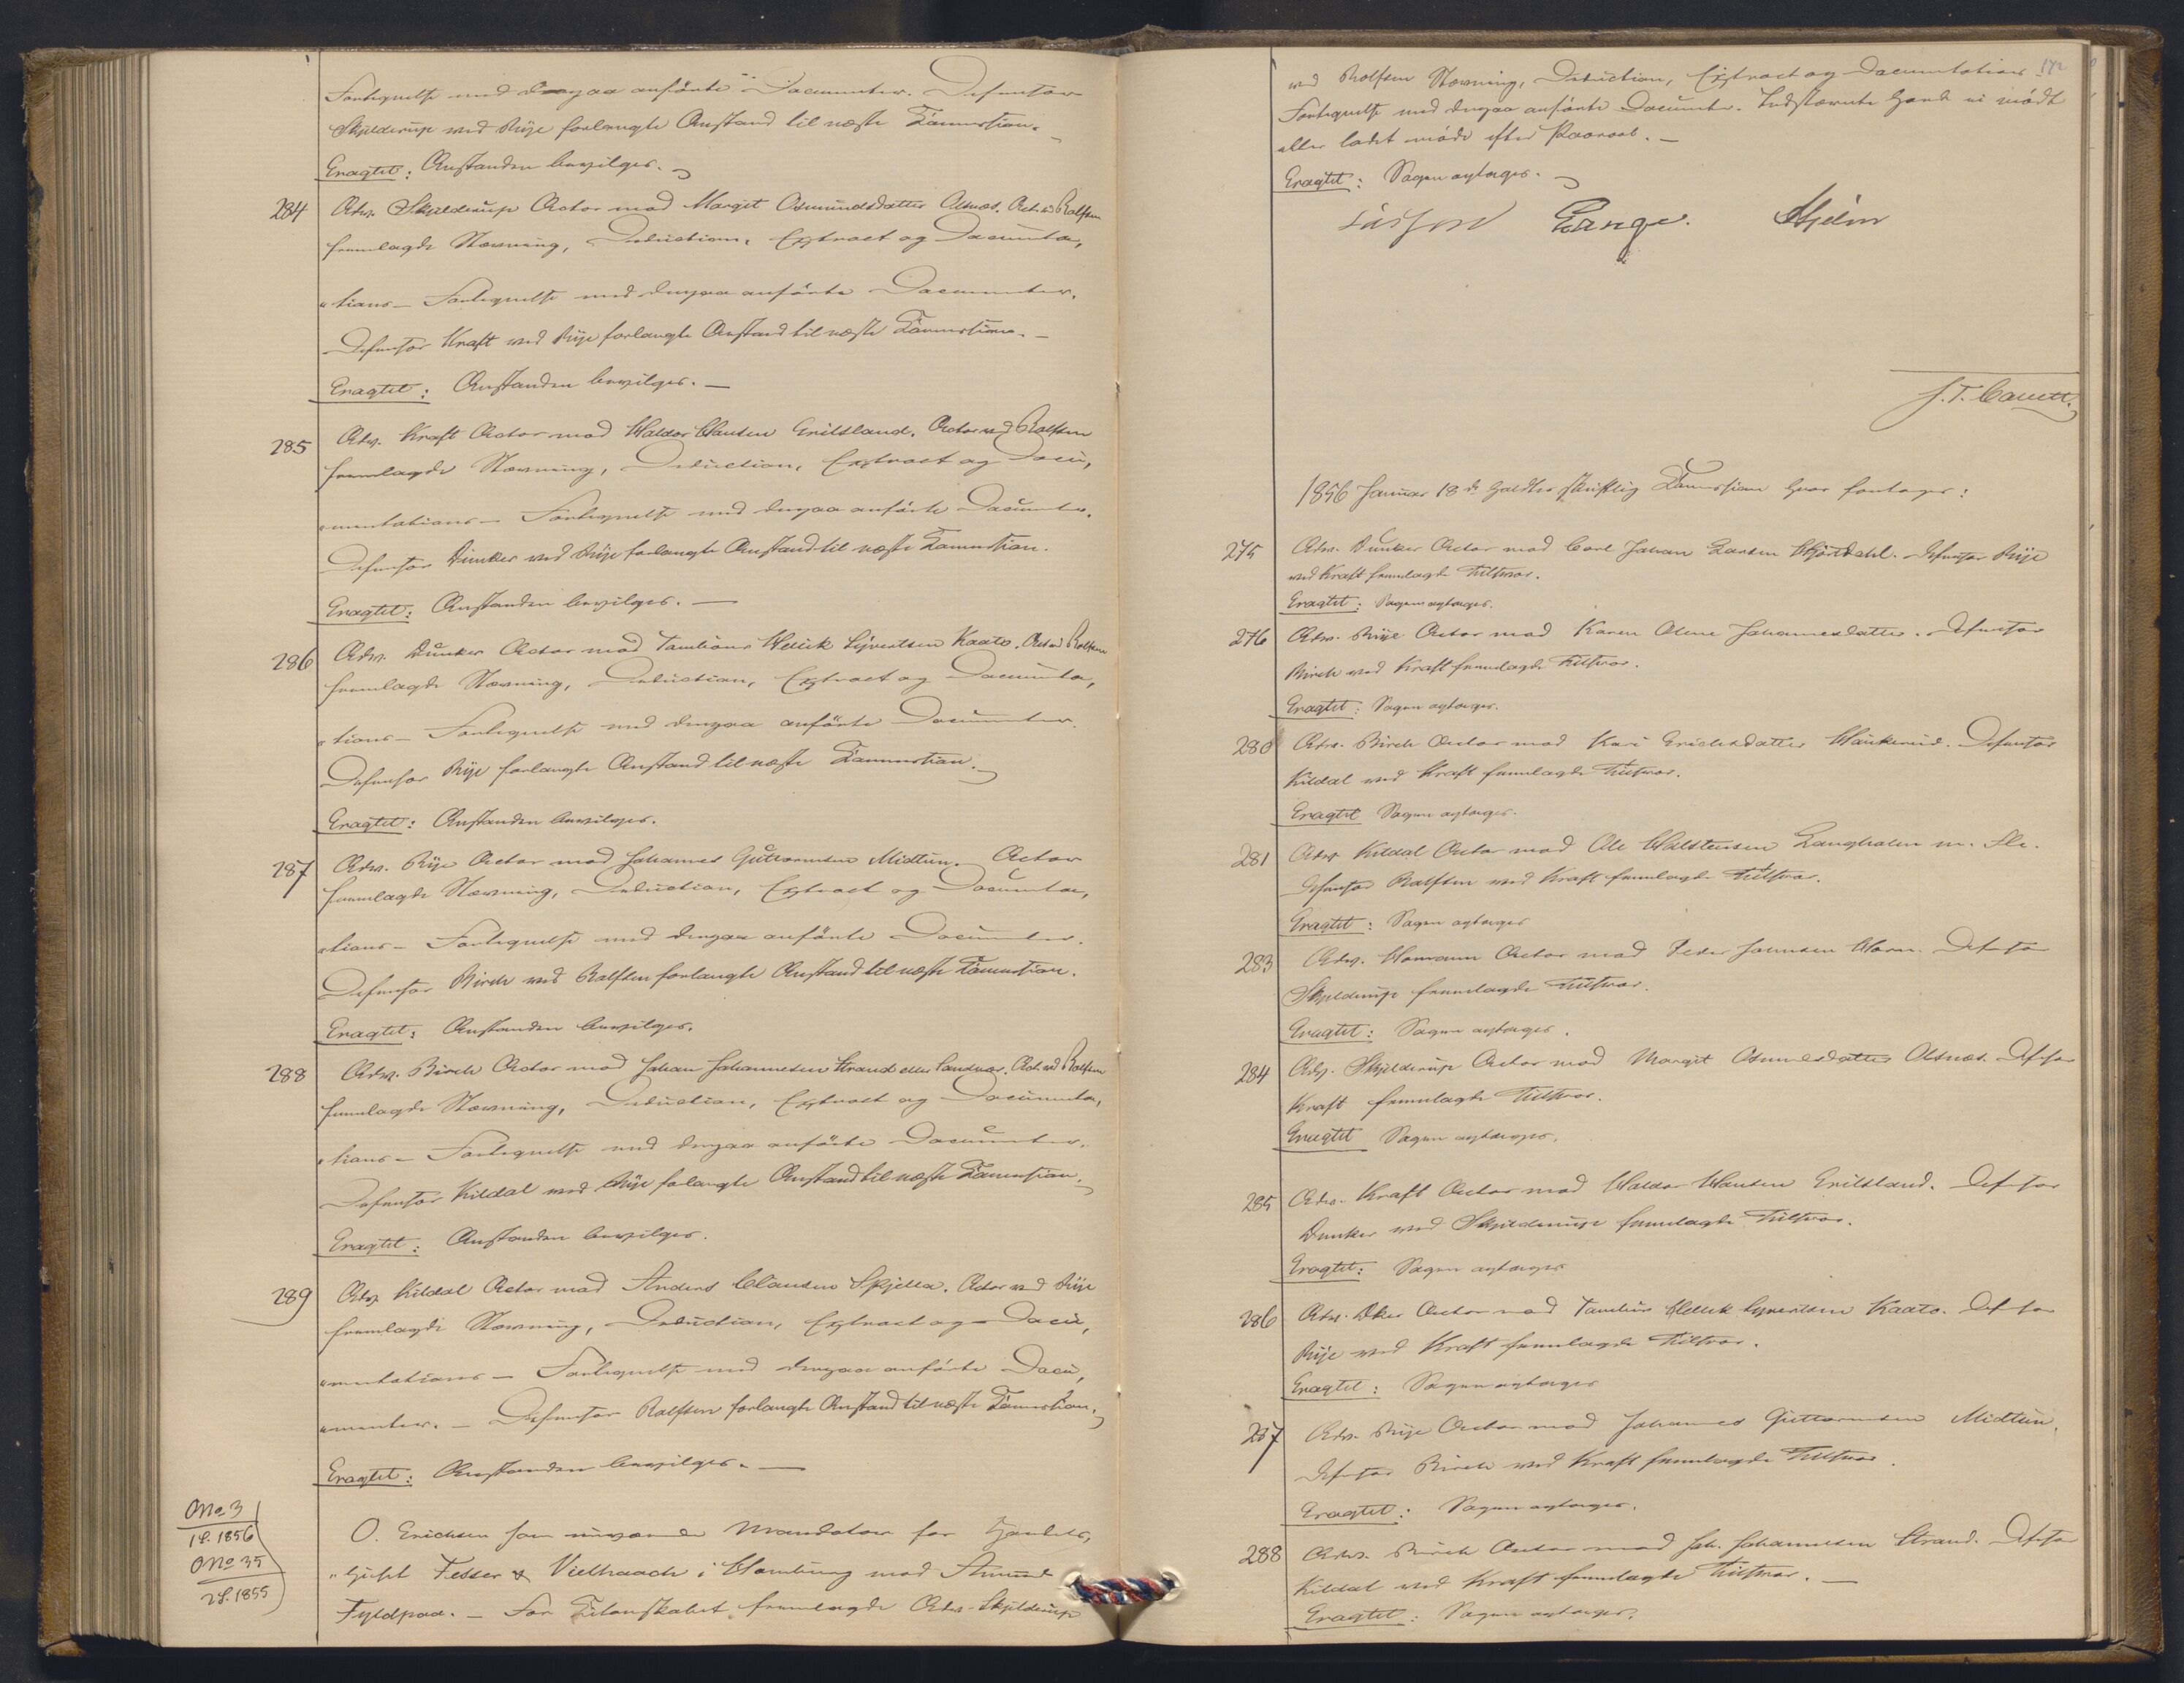 Fortegnelse med derpaa anførte Documenter. Defensor
Skjelderup ved Rije forlangte Anstand til næste Examination.
Eragtet: Anstanden bevilges.
284 Adv. Skjelderup Actor mod Margit Asmundsdatter Alsnæs. Act. ved Rolfsen
fremlagde Stævning, Deduction, Extract og Documenta,
"tions – Fortegnelse med derpaa anførte Documenter.
Defensor Kraft ved Rije forlangte Anstand til næste
Eragtet: Anstanden bevilges. —
285 Adv. Kraft Actor mod Haldor Hansen Erilsland. Actor ved Rolfsen
fremlagde Stævning, Deduction, Extract og Docu,
"mentations – Fortegnelse med derpaa anførte Documenter.
Defensor Dunker ved Rije forlangte Anstand til næste
Eragtet: Anstanden bevilges. —
286 Adv. Dunker Actor mod Tambour Hellik Syvertsen Kaato. Act. ved Rolfsen
fremlagde Stævning, Deduction, Extract og Documenta,
"tions – Fortegnelse med derpaa anførte Documenter.
Defensor Rije forlangte Anstand til næste
Eragtet: Anstanden bevilges.
287 Adv. Rije Actor mod Johannes Guttormsen Midtun. Actor
fremlagde Stævning, Deduction, Extract og Documenta,
"tions – Fortegnelse med derpaa anførte Documenter.
Defensor Birch ved Rolfsen forlangte Anstand til næste
Eragtet: Anstanden bevilges.
288 Adv. Birch Actor mod Johan Johannesen Strand eller Sandnæs. Act. ved Rolfsen
fremlagde Stævning, Deduction, Extract og Documenta,
"tions – Fortegnelse med derpaa anførte Documenter.
Defensor Kildal ved Rije forlangte Anstand til næste
Eragtet: Anstanden bevilges.
289 Adv. Kildal Actor mod Anders Clausen Skjella. Actor ved Rije
fremlagde Stævning, Deduction, Extract og Docu,
"mentations – Fortegnelse med derpaa anførte Docu,
"menter. – Defensor Rolfsen forlangte Anstand til næste
Eragtet: Anstanden bevilges. —
No 3
1 S. 1856
No 35
2 S. 1855
O. Erichsen som Mandatar for Handels,
"huset Fesser & Vielhaack i Hamburg mod Amund
Fyldpaa. – For Citantskabet fremlagde Adv. Skjelderup
172
ved Rolfsen Stævning, Deduction, Extract og Documentations
Fortegnelse med derpaa anførte Documenter. Indstævnte havde ei mødt
eller ladet møde efter Paaraab. —
Eragtet: Sagen optages.
Lasson Lange. Hjelm
J. T. Cauett.
1856 Januar 18de holdtes skriftlig hvor foretoges:
275 Adv. Dunker Actor mod Carl Johan Larsen Hjortdahl. Defensor Rije
ved Kraft fremlagde Tilsvar.
Eragtet: Sagen optages.
276 Adv. Rije Actor mod Karen Oline Johannesdatter. Defensor
Birch ved Kraft fremlagde Tilsvar.
Eragtet: Sagen optages.
280 Adv. Birch Actor mod Kari Erichsdatter Haukerud. Defensor
Kildal ved Kraft fremlagde Tilsvar.
Eragtet Sagen optages.
281 Adv. Kildal Actor mod Ole Halstensen Langhalen m. Fl.
Defensor Rolfsen ved Kraft fremlagde Tilsvar.
Eragtet: Sagen optages
283 Adv. Homann Actor mod Peder Johnsen Horn. Defensor
Skjelderup fremlagde Tilsvar.
Eragtet: Sagen optages.
284 Adv. Skjelderup Actor mod Margit Asmundsdatter Alsnæs. Defensor
Kraft fremlagde Tilsvar.
Eragtet Sagen optages.
285 Adv. Kraft Actor mod Haldor Hansen Erilsland. Defensor
Dunker ved Skjelderup fremlagde Tilsvar.
Eragtet: Sagen optages
286 Adv. Dker Actor mod Tambur Hellik Syvertsen Kaato. Defensor
Rije ved Kraft fremlagde Tilsvar.
Eragtet: Sagen optages
287 Adv. Rije Actor mod Johannes Guttormsen Midtun.
Defensor Birch ved Kraft fremlagde Tilsvar.
Eragtet: Sagen optages.
288 Adv. Birch Actor mod Joh. Johannesen Strand. Defensor
Kildal ved Kraft fremlagde Tilsvar. —
Eragtet: Sagen optages.